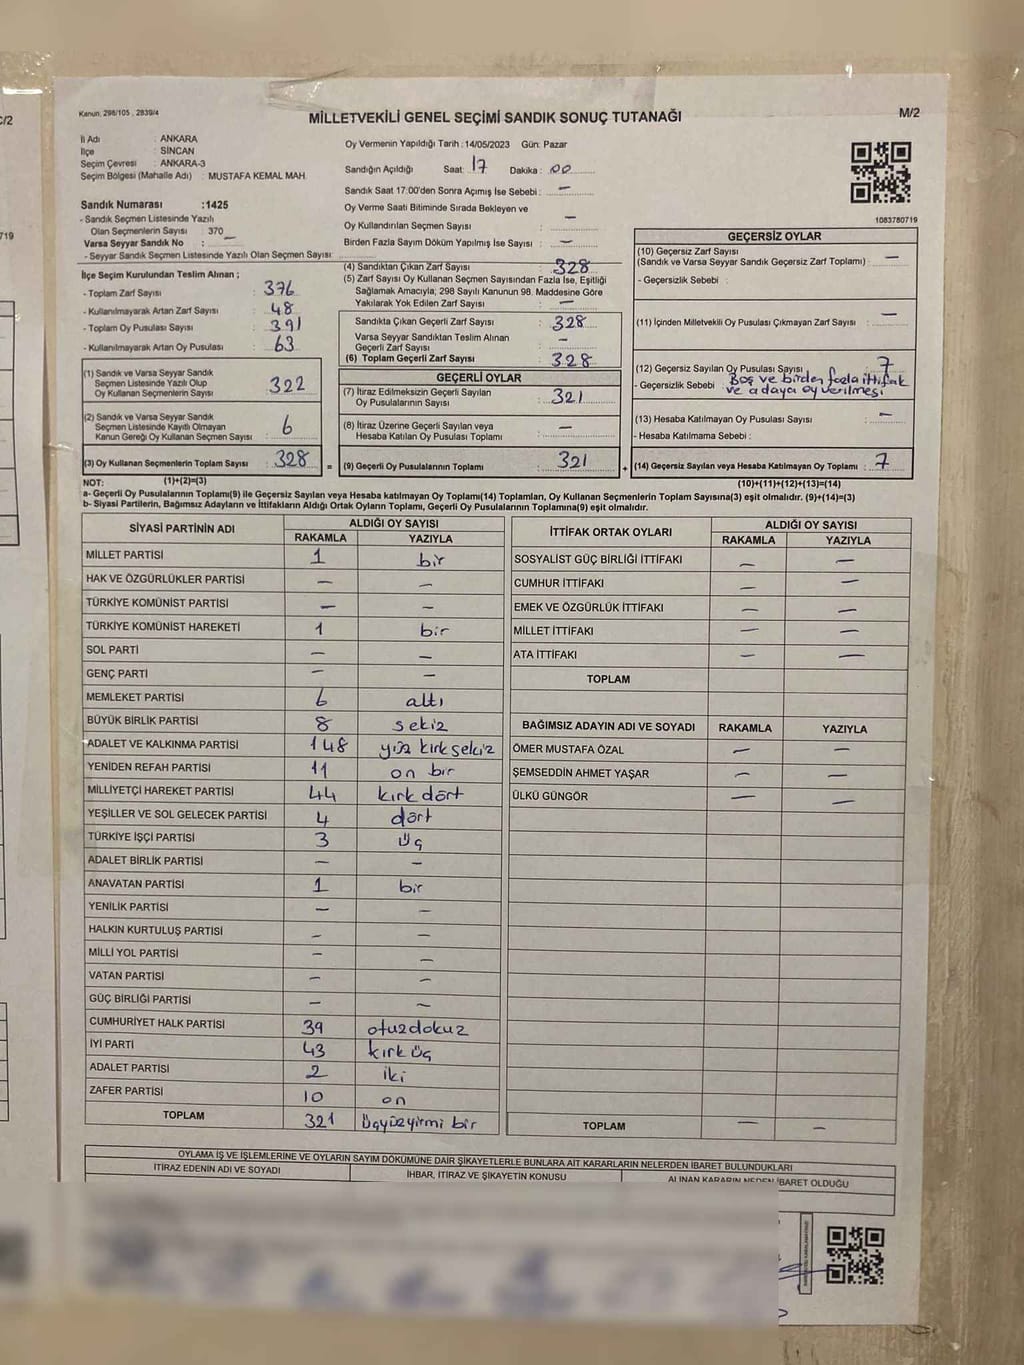 Kanun, 298/105 , 2839/4
MİLLETVEKİLİ GENEL SEÇİMİ SANDIK SONUÇ TUTANAĞI
M/2
İl Adı : ANKARA
İlçe : SİNCAN
Seçim Çevresi : ANKARA-3
Seçim Bölgesi (Mahalle Adı) : MUSTAFA KEMAL MAH.
Sandık Numarası :1425
- Sandık Seçmen Listesinde Yazılı
Olan Seçmenlerin Sayısı : 370
Varsa Seyyar Sandık No : —
- Seyyar Sandık Seçmen Listesinde Yazılı Olan Seçmen Sayısı:
Oy Vermenin Yapıldığı Tarih :14/05/2023 Gün: Pazar
Sandığın Açıldığı Saat: 17 Dakika : 00
Sandık Saat 17:00'den Sonra Açımış İse Sebebi : —
Oy Verme Saati Bitiminde Sırada Bekleyen ve
Oy Kullandırılan Seçmen Sayısı : —
Birden Fazla Sayım Döküm Yapılmış İse Sayısı : —
1083780719
İlçe Seçim Kurulundan Teslim Alınan ;
- Toplam Zarf Sayısı : 376
- Kullanılmayarak Artan Zarf Sayısı : 48
- Toplam Oy Pusulası Sayısı : 391
- Kullanılmayarak Artan Oy Pusulası : 63
(1) Sandık ve Varsa Seyyar Sandık
Seçmen Listesinde Yazılı Olup
Oy Kullanan Seçmenlerin Sayısı : 322
(2) Sandık ve Varsa Seyyar Sandık
Seçmen Listesinde Kayıtlı Olmayan
Kanun Gereği Oy Kullanan Seçmen Sayısı : 6
(3) Oy Kullanan Seçmenlerin Toplam Sayısı : 328
(4) Sandıktan Çıkan Zarf Sayısı : 328
(5) Zarf Sayısı Oy Kullanan Seçmen Sayısından Fazla İse, Eşitliği
Sağlamak Amacıyla; 298 Sayılı Kanunun 98. Maddesine Göre
Yakılarak Yok Edilen Zarf Sayısı : —
Sandıkta Çıkan Geçerli Zarf Sayısı : 328
Varsa Seyyar Sandıktan Teslim Alınan
Geçerli Zarf Sayısı : —
(6) Toplam Geçerli Zarf Sayısı : 328
GEÇERLİ OYLAR
(7) İtiraz Edilmeksizin Geçerli Sayılan
Oy Pusulalarının Sayısı : 321
(8) İtiraz Üzerine Geçerli Sayılan veya
Hesaba Katılan Oy Pusulası Toplamı : —
= (9) Geçerli Oy Pusulalarının Toplamı : 321
GEÇERSİZ OYLAR
(10) Geçersiz Zarf Sayısı
(Sandık ve Varsa Seyyar Sandık Geçersiz Zarf Toplamı) : —
- Geçersizlik Sebebi :
(11) İçinden Milletvekili Oy Pusulası Çıkmayan Zarf Sayısı : —
(12) Geçersiz Sayılan Oy Pusulası Sayısı : 7
- Geçersizlik Sebebi : Boş ve birden fazla ittifak
ve adaya oy verilmesi
(13) Hesaba Katılmayan Oy Pusulası Sayısı : —
- Hesaba Katılmama Sebebi :
+ (14) Geçersiz Sayılan veya Hesaba Katılmayan Oy Toplamı : 7
NOT: (1)+(2)=(3)
(10)+(11)+(12)+(13)=(14)
a- Geçerli Oy Pusulalarının Toplamı(9) ile Geçersiz Sayılan veya Hesaba katılmayan Oy Toplamı(14) Toplamları, Oy Kullanan Seçmenlerin Toplam Sayısına(3) eşit olmalıdır. (9)+(14)=(3)
b- Siyasi Partilerin, Bağımsız Adayların ve İttifakların Aldığı Ortak Oyların Toplamı, Geçerli Oy Pusulalarının Toplamına(9) eşit olmalıdır.
SİYASİ PARTİNİN ADI ALDIĞI OY SAYISI
RAKAMLA YAZIYLA
MİLLET PARTİSİ 1 bir
HAK VE ÖZGÜRLÜKLER PARTİSİ — —
TÜRKİYE KOMÜNİST PARTİSİ — —
TÜRKİYE KOMÜNİST HAREKETİ 1 bir
SOL PARTİ — —
GENÇ PARTİ — —
MEMLEKET PARTİSİ 6 altı
BÜYÜK BİRLİK PARTİSİ 8 sekiz
ADALET VE KALKINMA PARTİSİ 148 yüz kırk sekiz
YENİDEN REFAH PARTİSİ 11 on bir
MİLLİYETÇİ HAREKET PARTİSİ 44 kırk dört
YEŞİLLER VE SOL GELECEK PARTİSİ 4 dört
TÜRKİYE İŞÇİ PARTİSİ 3 üç
ADALET BİRLİK PARTİSİ — —
ANAVATAN PARTİSİ 1 bir
YENİLİK PARTİSİ — —
HALKIN KURTULUŞ PARTİSİ — —
MİLLİ YOL PARTİSİ — —
VATAN PARTİSİ — —
GÜÇ BİRLİĞİ PARTİSİ — —
CUMHURİYET HALK PARTİSİ 39 otuzdokuz
İYİ PARTİ 43 kırk üç
ADALET PARTİSİ 2 iki
ZAFER PARTİSİ 10 on
TOPLAM 321 üçyüzyirmi bir
İTTİFAK ORTAK OYLARI ALDIĞI OY SAYISI
RAKAMLA YAZIYLA
SOSYALİST GÜÇ BİRLİĞİ İTTİFAKI — —
CUMHUR İTTİFAKI — —
EMEK VE ÖZGÜRLÜK İTTİFAKI — —
MİLLET İTTİFAKI — —
ATA İTTİFAKI — —
TOPLAM
BAĞIMSIZ ADAYIN ADI VE SOYADI RAKAMLA YAZIYLA
ÖMER MUSTAFA ÖZAL — —
ŞEMSEDDİN AHMET YAŞAR — —
ÜLKÜ GÜNGÖR — —
TOPLAM — —
OYLAMA İŞ VE İŞLEMLERİNE VE OYLARIN SAYIM DÖKÜMÜNE DAİR ŞİKAYETLERLE BUNLARA AİT KARARLARIN NELERDEN İBARET BULUNDUKLARI
İTİRAZ EDENİN ADI VE SOYADI İHBAR, İTİRAZ VE ŞİKAYETİN KONUSU ALINAN KARARIN NEDEN İBARET OLDUĞU